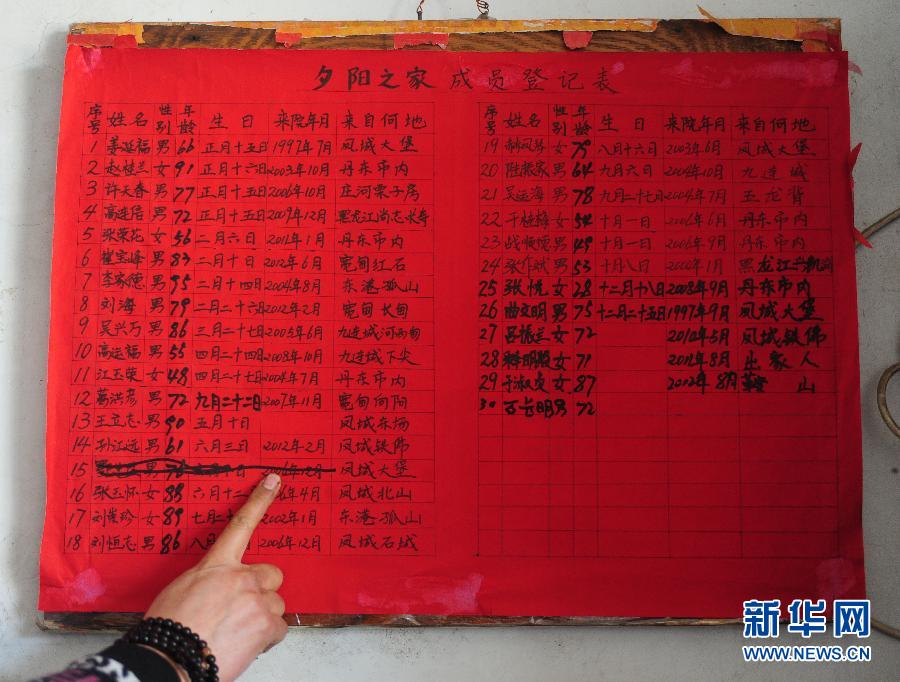 夕阳之家成员登记表
序号 姓名 性别 年龄 生日 来院年月 来自何地
1 姜延福 男 66 正月十五日 1997年7月 凤城大堡
2 赵桂兰 女 91 正月十六日 2003年10月 丹东市内
3 许天春 男 77 正月十五日 2006年10月 庄河栗子房
4 高连居 男 72 正月十五日 2009年12月 黑龙江尚志
5 张荣花 女 56 二月六日 2012年1月 丹东市内
6 崔宝峰 男 83 二月十日 2012年6月 宽甸红石
7 李家德 男 95 二月十四日 2004年8月 东港孤山
8 刘海 男 79 二月二十六日 2012年2月 宽甸长甸
9 吴兴万 男 86 三月二十七日 2005年6月 九连城河西甸
10 高运福 男 55 四月二十四日 2008年10月 九连城下尖
11 江玉荣 女 48 四月二十七日 2004年7月 丹东市内
12 葛洪彦 男 72 九月二十二日 2007年11月 宽甸向阳
13 王立志 男 90 五月十日 凤城东汤
14 孙江远 男 61 六月三日 2012年2月 凤城铁佛
15 男 2006年12月 凤城大堡
16 张玉怀 女 88 六月十二 年4月 凤城北山
17 刘崇珍 女 89 七月二 2002年1月 东港孤山
18 刘恒志 男 86 八月 2006年12月 凤城石城
序号 姓名 性别 年龄 生日 来院年月 来自何地
19 女 79 八月十六日 2003年6月 凤城大堡
20 男 64 九月六日 2004年10月 九连城
21 吴运海 男 78 九月二十七日 2004年7月 五龙背
22 于桂梅 女 54 十月一日 2006年6月 丹东市内
23 战顺德 男 49 十月一日 2006年9月 丹东市内
24 张作斌 男 53 十月八日 年1月 黑龙江
25 张悦 女 28 十二月十八日 2008年9月 丹东市内
26 曲文明 男 75 十二月二十五日 1997年9月 凤城大堡
27 吕振兰 女 72 2012年5月 凤城铁佛
28 女 71 2012年8月 出家人
29 于淑贞 女 87 2012年8月 山
30 明 男 72
新华网
WWW.NEWS.CN